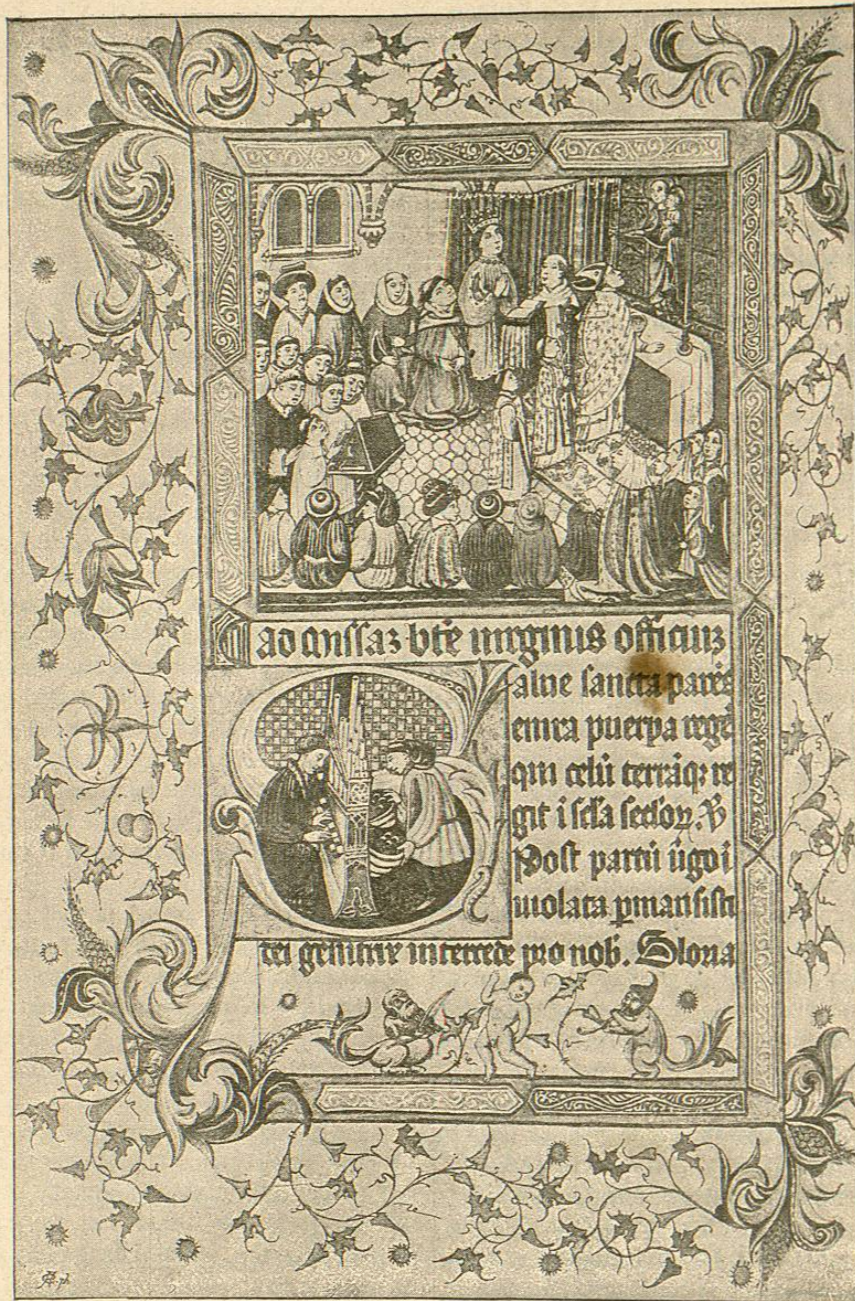 ad missaz bte uirginis officiuz
Salue sancta parēs
enixa puerpa regē
qui celū terrāqꝫ re
git i scl̄a scl̄oꝝ. ℣
Post partū ūgo i
uiolata ꝑmansisti
dei genitrix intercede pro nob̄. Gloria